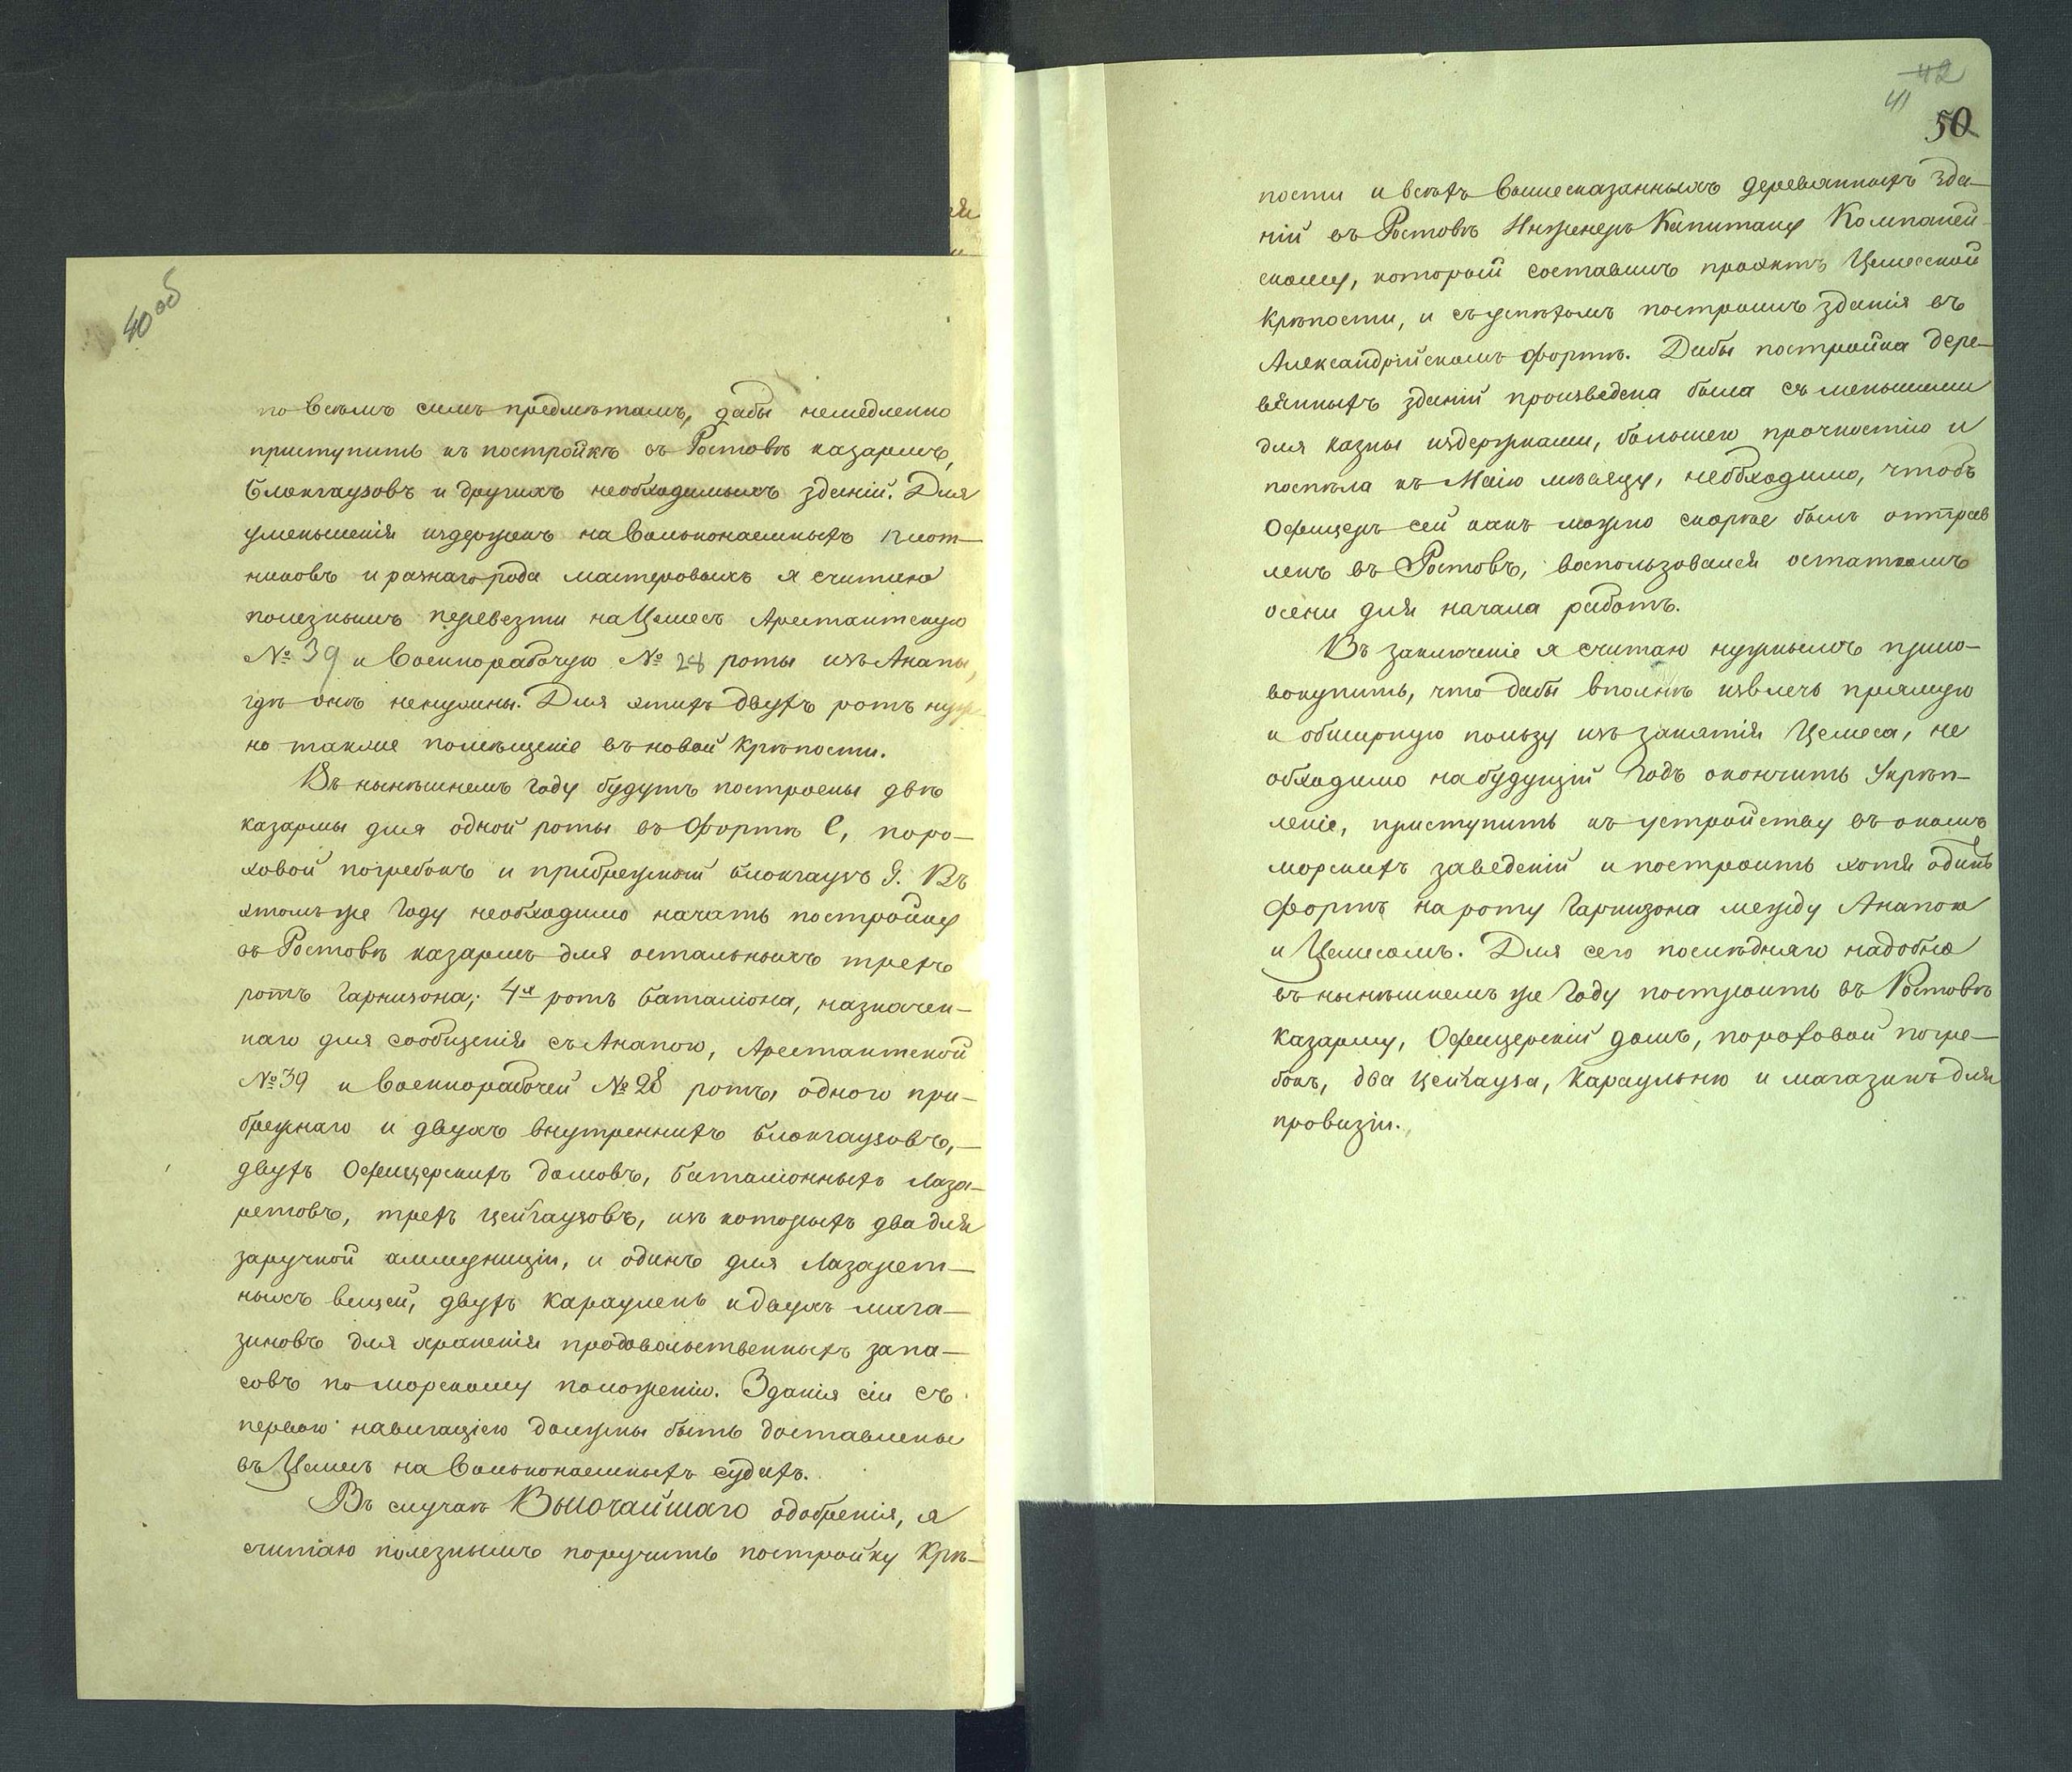 40 об
по всѣмъ симъ предметамъ, дабы немедленно
приступить къ постройкѣ въ Ростовѣ казармъ,
блокгаузовъ и другихъ необходимыхъ зданій. Для
уменьшенія издержекъ на вольнонаемныхъ плот-
никовъ и разнаго рода мастеровыхъ я считаю
полезнымъ перевезти на Цемесъ Арестантскую
№ 39 и Военнорабочую № 28 роты изъ Анапы,
гдѣ онѣ ненужны. Для этихъ двухъ ротъ нуж-
но также помѣщеніе въ новой Крѣпости.
Въ нынѣшнемъ году будутъ построены двѣ
казармы для одной роты въ Фортѣ С, поро-
ховой погребокъ и прибрежной блокгаузъ G. Въ
этомъ же году необходимо начать постройку
въ Ростовѣ казармъ для остальныхъ трехъ
ротъ Гарнизона; 4я ротъ баталіона, назначен-
наго для сообщенія съ Анапою, Арестантской
№ 39 и Военнорабочей № 28 ротъ, одного при-
брежнаго и двухъ внутреннихъ блокгаузовъ,
двухъ Офицерскихъ домовъ, баталіонныхъ Лаза-
ретовъ, трехъ цейгаузовъ, изъ которыхъ два для
заручной аммуниціи, и одинъ для Лазарет-
ныхъ вещей, двухъ караулень и двухъ мага-
зиновъ для храненія продовольственныхъ запа-
совъ по морскому положенію. Зданія сіи съ
первою навигаціею должны быть доставлены
въ Цемесъ на вольнонаемныхъ судахъ.
Въ случаѣ Высочайшаго одобренія, я
считаю полезнымъ поручить постройку Крѣ-
42
41
50
пости и всѣхъ вышесказанныхъ деревянныхъ зда-
ній въ Ростовѣ Инженеръ Капитану Компаней-
скому, который составилъ проэктъ Цемесской
Крѣпости, и съ успѣхомъ построилъ зданія въ
Александрійскомъ фортѣ. Дабы постройка дере-
вянныхъ зданій произведена была съ меньшими
для казны издержками, большею прочностію и
поспѣла къ Маію мѣсяцу, необходимо, чтобъ
Офицеръ сей какъ можно скорѣе былъ отправ
ленъ въ Ростовъ, воспользовался остаткомъ
осени для начала работъ.
Въ заключеніе я считаю нужнымъ присо-
вокупить, что дабы вполнѣ извлечь прямую
и обширную пользу изъ занятія Цемеса, не
обходимо на будущій годъ окончить Укрѣп-
леніе, приступить къ устройству въ ономъ
морскихъ заведеній и построить хотя одинъ
фортъ на роту Гарнизона между Анапою
и Цемесомъ. Для сего послѣдняго надобно
въ нынѣшнемъ же году построить въ Ростовѣ
казарму, Офицерскій домъ, пороховой погре-
бокъ, два цейгауза, караульню и магазинъ для
провизіи.